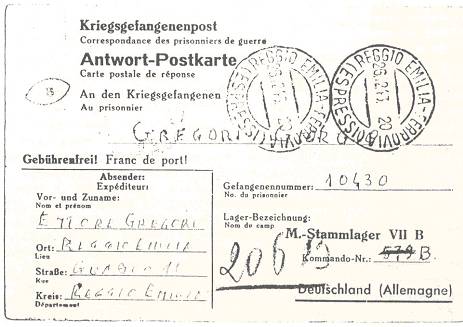 Kriegsgefangenenpost
Correspondance des prisonniers de guerre
Antwort-Postkarte
Carte postale de réponse
An den Kriegsgefangenen
Au prisonnier
REGGIO EMILIA-FERROVIA (ESPRESSI)
26.2.43 20
REGGIO EMILIA-FERROVIA (ESPRESSI)
26.2.43 20
GREGORI
Gebührenfrei! Franc de port!
Absender:
Expéditeur:
Vor- und Zuname:
Nom et prénom
ETTORE GREGORI
Ort: REGGIO EMILIA
Lieu
Straße:
Rue
Kreis: REGGIO EMILIA
Département
Gefangenennummer: 10430
No. du prisonnier
Lager-Bezeichnung:
Nom du camp
M.-Stammlager VII B
Kommando-Nr.: B.
206
Deutschland (Allemagne)